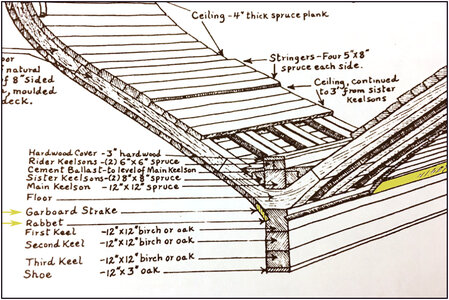 Ceiling-4" thick spruce plank
Stringers-Four 5"x8"
spruce each side.
Ceiling, continued
to 3' from sister
keelsons
oor
natural
of 8" sided
, moulded
deck.
Hardwood Cover -3" hardwood
Rider Keelsons-(2) 6"x6" spruce
Cement Ballast-to level of Main Keelson
Sister Keelsons-(2) 8"x8" spruce
Main Keelson -12"x12" spruce
Floor
Garboard Strake
Rabbet
First Keel -12"x12" birch or oak
Second Keel -12"x12" birch or oak
Third Keel -12"x12" birch or oak
Shoe -12"x3" oak